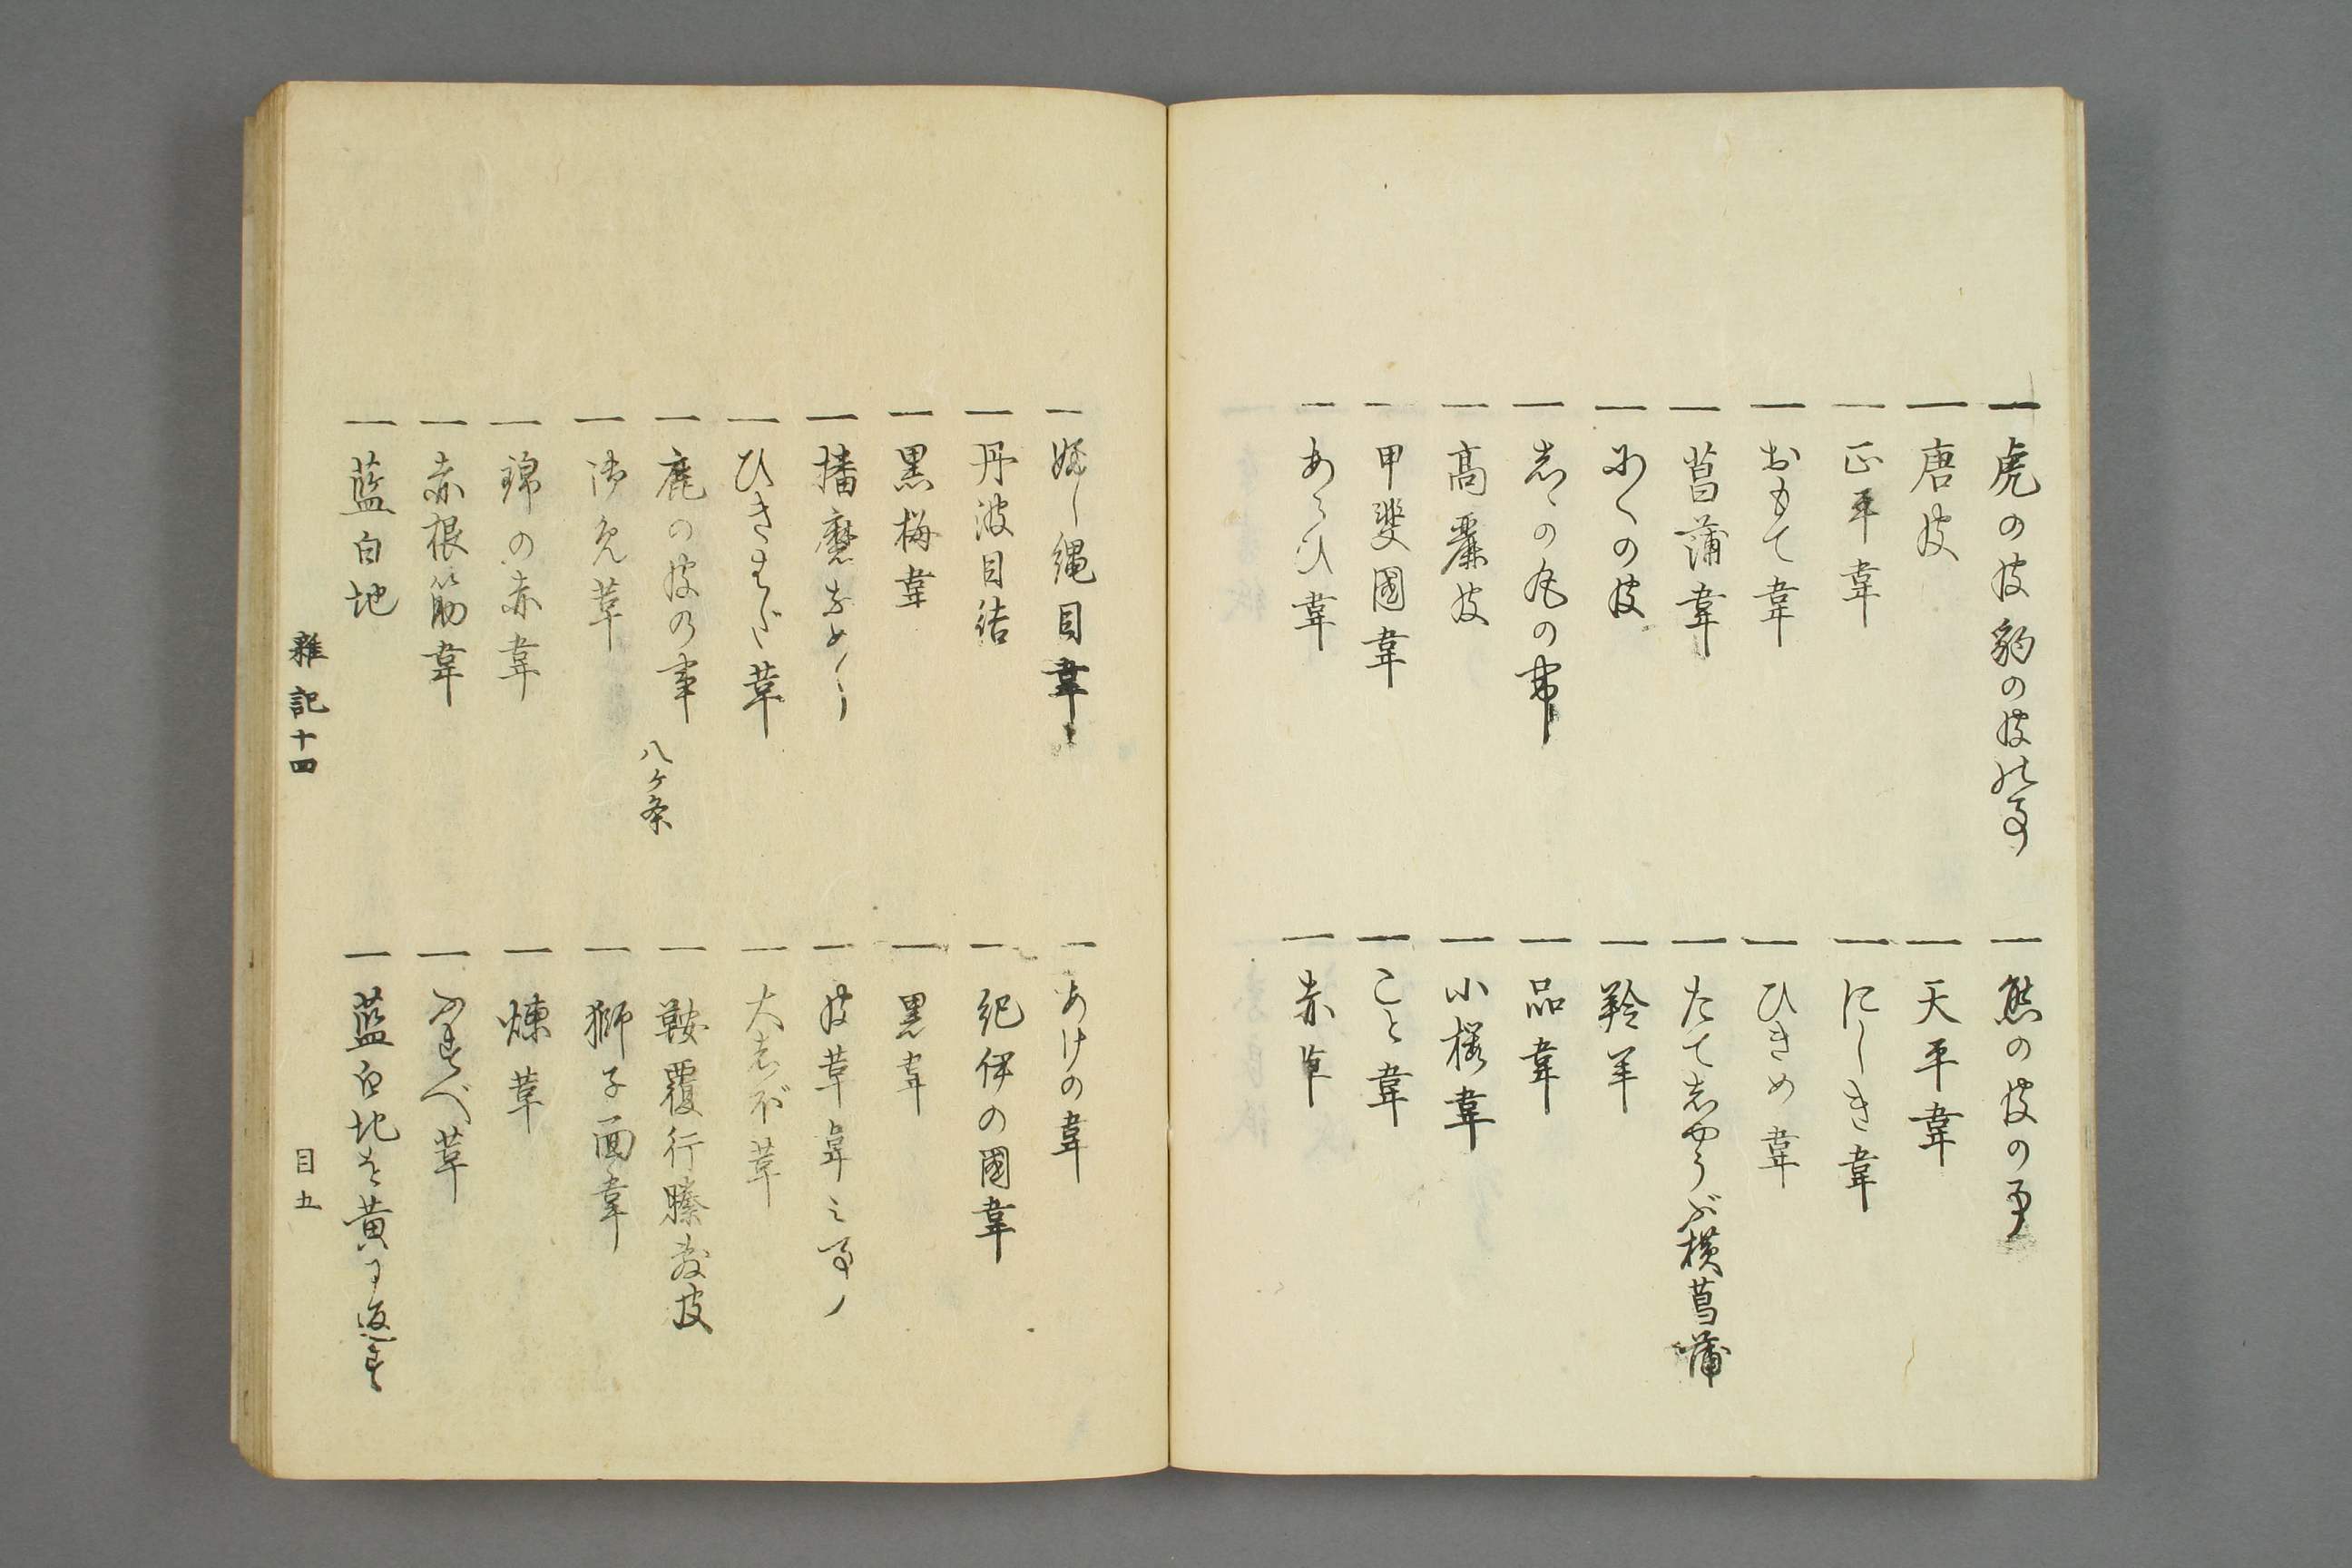 一 虎の皮豹の皮の事
一 熊の皮の事
一 唐皮
一 天平韋
一 正平韋
一 にしき韋
一 おもて韋
一 ひきめ韋
一 菖蒲韋
一 たて志やうぶ横菖蒲
一 にくの皮
一 羚羊
一 志ゝの丸の韋
一 品韋
一 高麗皮
一 小桜韋
一 甲斐國韋
一 こと韋
一 あらひ韋
一 赤革
一 ふし縄目韋
一 あけの韋
一 丹波目結
一 紀伊の國韋
一 黒梅韋
一 黒韋
一 播磨なめし
一 皮革韋之事
一 ひきはだ革
一 大志ぼ革
一 鹿の皮の事 八ヶ条
一 鞍覆行縢敷皮
一 御免革
一 獅子面韋
一 錦の赤韋
一 煉革
一 赤根筋韋
一 ふすべ革
一 藍白地
一 藍白地を黄に返す
雜記十四
目五